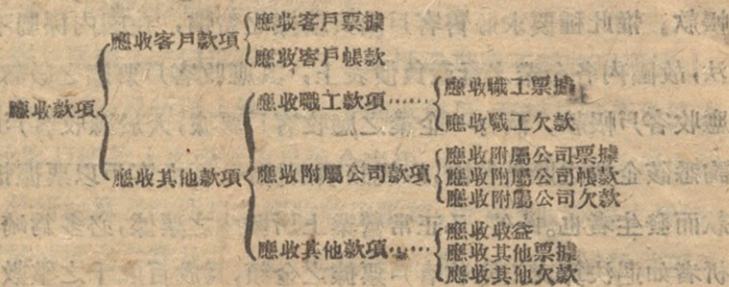 應收款項
應收客戶款項
應收客戶票據
應收客戶帳款
應收其他款項
應收職工款項……
應收職工票據
應收職工欠款
應收附屬公司款項
應收附屬公司票據
應收附屬公司帳款
應收附屬公司欠款
應收其他款項……
應收收益
應收其他票據
應收其他欠款